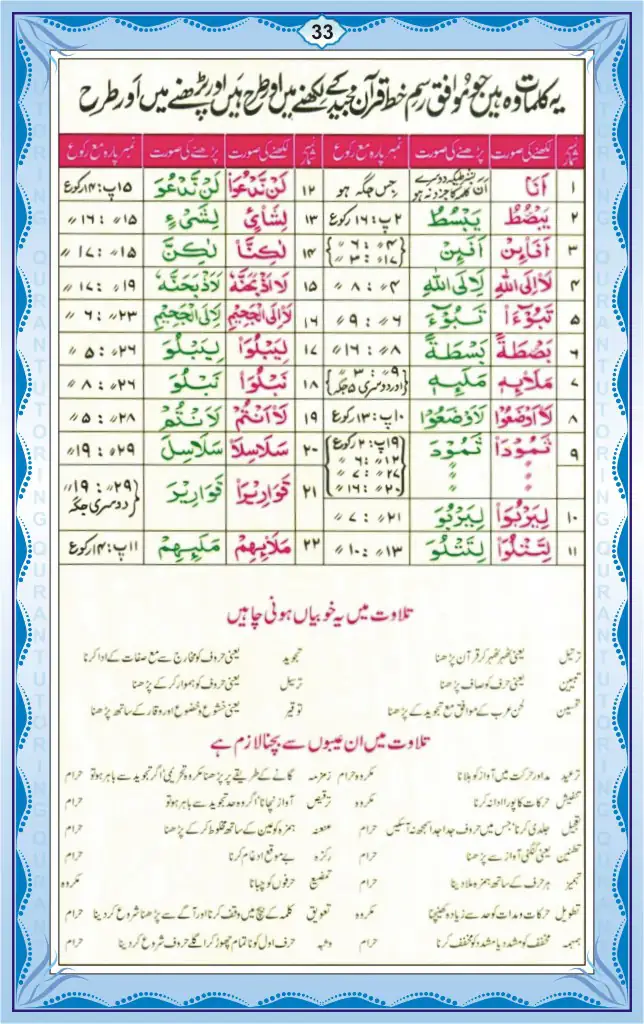 33
یہ کلمات وہ ہیں جو موافق رسم خط قرآن مجید کے لکھنے میں اور طرح ہیں اور پڑھنے میں اور طرح
نمبر شمار لکھنے کی صورت پڑھنے کی صورت نمبر پارہ مع رکوع نمبر شمار لکھنے کی صورت پڑھنے کی صورت نمبر پارہ مع رکوع
۱ اَنَا جس جگہ ہو ۱۲ لَنْ نَّدْعُوَا۟ لَنْ نَّدْعُوَ ۱۵پ:۱۴رکوع
۲ یَبْصُطُ یَبْسُطُ ۲پ:۱۶رکوع ۱۳ لِشَایْءٍ لِشَیْءٍ ۱۵〃:۱۶〃
۳ اَفَا۟ئِنْ اَفَئِنْ ۴〃:۶〃 ۱۷〃:۳〃 ۱۴ لٰكِنَّا۟ لٰكِنَّ ۱۵〃:۱۷〃
۴ لَا۟اِلَی اللّٰهِ لَاِلَی اللّٰهِ ۴〃:۸〃 ۱۵ لَا۟اَذْبَحَنَّهٗ لَاَذْبَحَنَّهٗ ۱۹〃:۱۷〃
۵ تَبُوْٓءَا۟ تَبُوْٓءَ ۶〃:۹〃 ۱۶ لَا۟اِلَی الْجَحِیْمِ لَاِلَی الْجَحِیْمِ ۲۳〃:۶〃
۶ بَصْطَةً بَسْطَةً ۸〃:۱۶〃 ۱۷ لِیَبْلُوَا۟ لِیَبْلُوَ ۲۶〃:۵〃
۷ مَلَا۟ئِهٖ مَلَئِهٖ ۹〃:۳〃 اور دوسری ۵ جگہ ۱۸ نَبْلُوَا۟ نَبْلُوَ ۲۶〃:۸〃
۸ لَا۟اَوْضَعُوْا لَاَوْضَعُوْا ۱۰پ:۱۳رکوع ۱۹ لَا۟اَنْتُمْ لَاَنْتُمْ ۲۸〃:۵〃
۹ ثَمُوْدَا۟ ثَمُوْدَ ۱۹پ:۲رکوع ۱۲〃:۶〃 ۲۷〃:۷〃 ۲۰〃:۱۶〃 ۲۰ سَلَاسِلَا۟ سَلَاسِلَ ۲۹〃:۱۹〃
۲۱ قَوَارِیْرَا۟ قَوَارِیْرَ ۲۹〃:۱۹〃 دوسری جگہ
۱۰ لِیَرْبُوَا۟ لِیَرْبُوَ ۲۱〃:۷〃
۱۱ لِتَتْلُوَا۟ لِتَتْلُوَ ۱۳〃:۱۰〃 ۲۲ مَلَا۟ئِهِمْ مَلَئِهِمْ ۱۱پ:۱۴رکوع
تلاوت میں یہ خوبیاں ہونی چاہیں
ترتیل یعنی ٹھہر ٹھہر کر قرآن پڑھنا تجوید یعنی حروف کو مخارج سے مع صفات کے ادا کرنا
تبیین یعنی حرف کو صاف پڑھنا ترسیل یعنی حروف کو ہموار کر کے پڑھنا
تحسین لحن عرب کے موافق مع تجوید کے پڑھنا توقیر یعنی خشوع و خضوع اور وقار کے ساتھ پڑھنا
تلاوت میں ان عیبوں سے بچنا لازم ہے
ترعید مد اور حرکت میں آواز کو ہلانا مکروہ حرام زمزمہ گانے کے طریقے پر پڑھنا مکروہ تحریمی' اگر تجوید سے باہر ہو تو حرام
حرکات کا پورا ادا نہ کرنا مکروہ ترقیص آواز نچانا' اگر وہ حد تجوید سے باہر ہو تو حرام
تعجیل جلدی کرنا' جس میں حروف جدا جدا سمجھ نہ آسکیں حرام عنعنہ ہمزہ کو عین کے ساتھ مخلوط کر کے پڑھنا حرام
تطنین یعنی گنگنی آواز سے پڑھنا حرام بے موقع ادغام کرنا حرام
تہمیز ہر حرف کے ساتھ ہمزہ ملا دینا حرام تمضیغ حرفوں کو چبانا مکروہ
تطویل حرکات و مدات کو حد سے زیادہ کھینچنا مکروہ تعویق کلمہ کے بیچ میں وقف کرنا اور آگے سے پڑھنا شروع کر دینا حرام
ہمہمہ مخفف کو مشدد یا مشدد کو مخفف کرنا حرام وثبہ حرف اول کو ناتمام چھوڑ کر اگلے حروف شروع کر دینا حرام
QURAN TUTORING QURAN TUTORING
QURAN TUTORING QURAN TUTORING